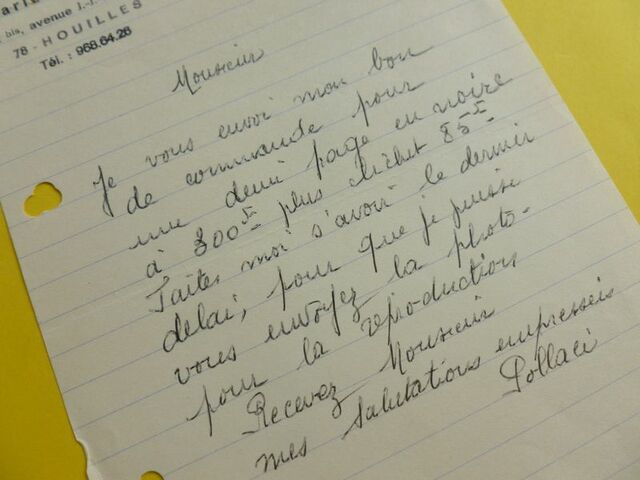 bis, avenue J.-J.
78 - HOUILLES
Tél. : 968.64.26
Monsieur
Je vous envoi mon bon
de commande pour
une demi page en noire
à 300F plus clichet 85F
Faites moi s'avoir le dernier
delai, pour que je puisse
vous envoyez la photo-
pour la reproduction,
Recevez Monsieur
mes salutations empresseis
Pollaci